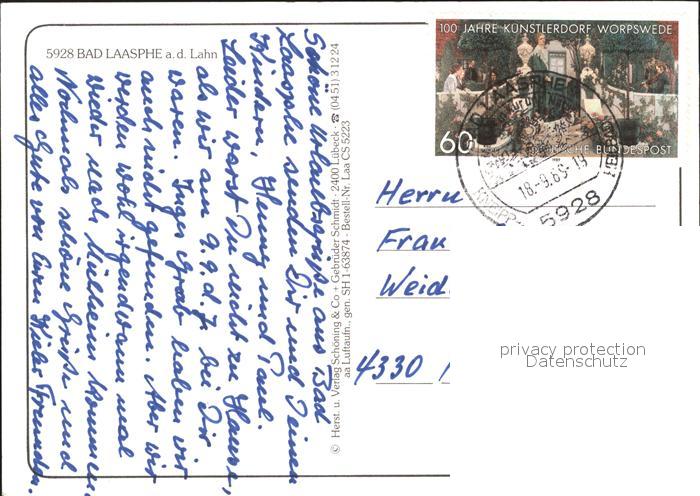 5928 BAD LAASPHE a. d. Lahn
Schöne Urlaubsgrüße aus Bad
Laasphe senden Dir und Deinen
Kindern, Henny und Paul.
Leider warst Du nicht zu Hause,
als wir am 9.9.d.J. bei Dir
waren. Inges Grab haben wir
auch nicht gefunden. Aber wir
werden wohl irgendwann mal
wieder nach Mülheim kommen.
Nochmals schöne Grüße und
alles Gute von Euren Kieler Freunden.
© Herst. u. Verlag Schöning & Co + Gebrüder Schmidt · 2400 Lübeck · ☎ (04 51) 3 12 24
aa Luftaufn., gen. SH 1-63874 · Bestell-Nr. Laa CS 5223
100 JAHRE KÜNSTLERDORF WORPSWEDE
60
DEUTSCHE BUNDESPOST
BAD LAASPHE
18.-9.89.-19
5928
Herrn
Frau
Weid
4330
privacy protection
Datenschutz